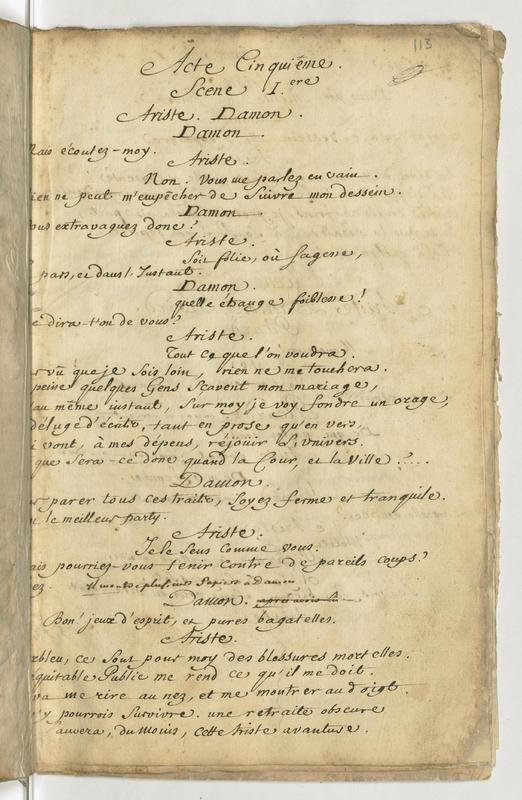 113
Acte Cinquiéme.
Scene I.ere
Ariste. Damon.
Damon.
Mais écoutez-moy.
Ariste.
Non. Vous me parlez en vain.
ien ne peut m'empêcher de Suivre mon dessein.
Damon
ous extravaguez donc?
Ariste.
Soit folie, où Sagesse,
pars, et dans l'Instant.
Damon.
quelle étrange foiblesse!
e dira-t'on de vous?
Ariste.
Tout ce que l'on voudra.
vû que je Sois loin, rien ne me touchera.
peine quelques Gens Scavent mon mariage,
au même instant, Sur moy je voy fondre un orage,
déluge d'écrits, tant en prose qu'en vers,
i vont, à mes dépens, réjoüir L'univers.
que Sera-ce donc quand la Cour, et la Ville?....
Damon.
parer tous ces traits, Soyez ferme et tranquile.
le meilleur party.
Ariste.
Je le Sens Comme vous.
ais pourriez-vous tenir Contre de pareils coups?
ez. Il montre plusieurs Papiers à Damon
Damon. après avoir lû
Bon! jeux d'esprit, et pures bagatelles.
Ariste.
rbleu, ce Sont pour moy des blessures mortelles.
équitable Public me rend ce qu'il me doit.
va me rire au nez, et me montrer au doigt.
y pourrois Survivre. une retraite obscure
auvera, du moins, cette triste avanture.